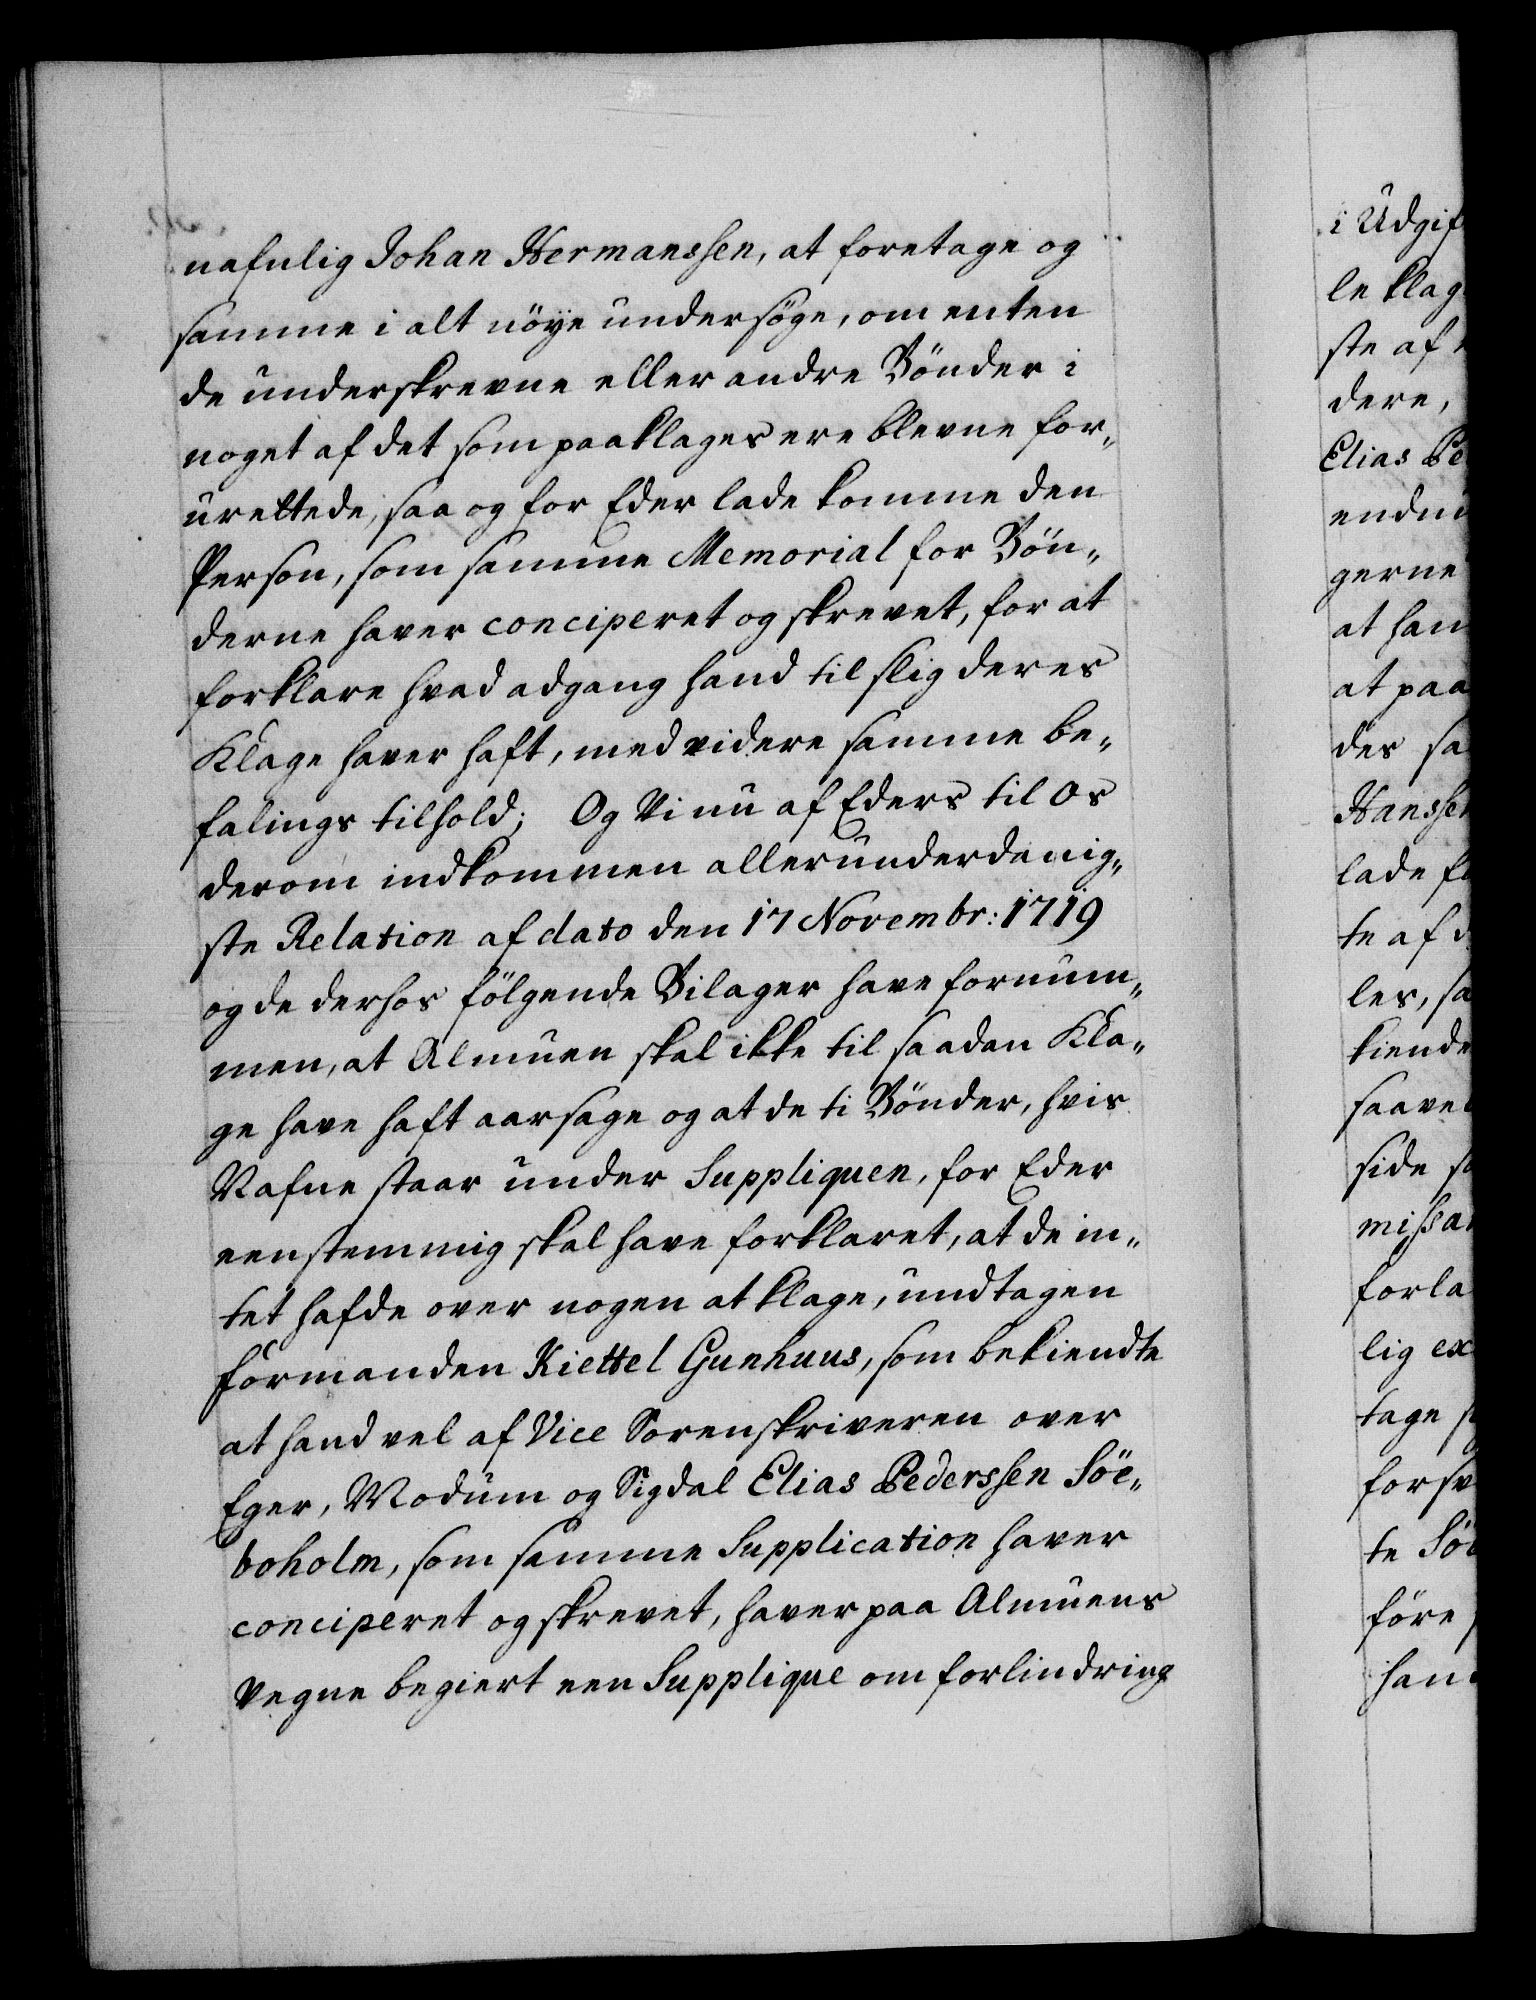 nafnlig Johan Hermanssen, at foretage og
samme i alt nöye undersöge, om enten
de underskrevne eller andre Bönder i
noget af det som paaklages ere blevne for„
urettede, saa og for Eder lade komme den
Person, som samme Memorial for Bön„
derne haver conciperet og skrevet, for at
forklare hvad adgang hand til slig deres
Klage haver haft, med videre samme be„
falings tilhold; Og Vi nu af Eders til Os
derom indkommen allerunderdanig„
ste Relation af dato den 17 Novembr: 1719
og de derhos fölgende Bilager have fornum„
men, at Almuen skal ikke til saadan Kla„
ge have haft aarsage og at de ti Bönder, hvis
Nafne staar under Suppliquen, for Eder
eenstemmig skal have forklaret, at de in„
tet hafde over nogen at klage, undtagen
Formanden Kiettel Gunhuus, som bekiendte
at hand vel af Vice Sorenskriveren over
Eger, Modum og Sigdal Elias Pederssen Söe„
boholm, som samme Supplication haver
conciperet og skrevet, haver paa Almuens
Vegne begiert een Supplique om forlindring
i Udgif
le klag
ste af
dere,
Elias Pe
endnu
gerne
at han
at paa
des sa
Hanssen
lade f
te af d
les, sa
kiende
saavel
side s
missar
forla
lig ex
tage
forsv
te Söe
före
han